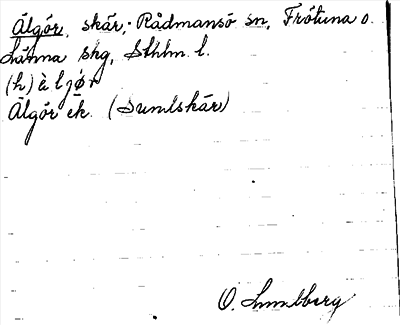 Älgör, skär, Rådmansö sn, Frötuna o.
Länna skg, Sthlm. l.
(h)èljǿr
Älgör ek. (Sundskär)
O. Lundberg